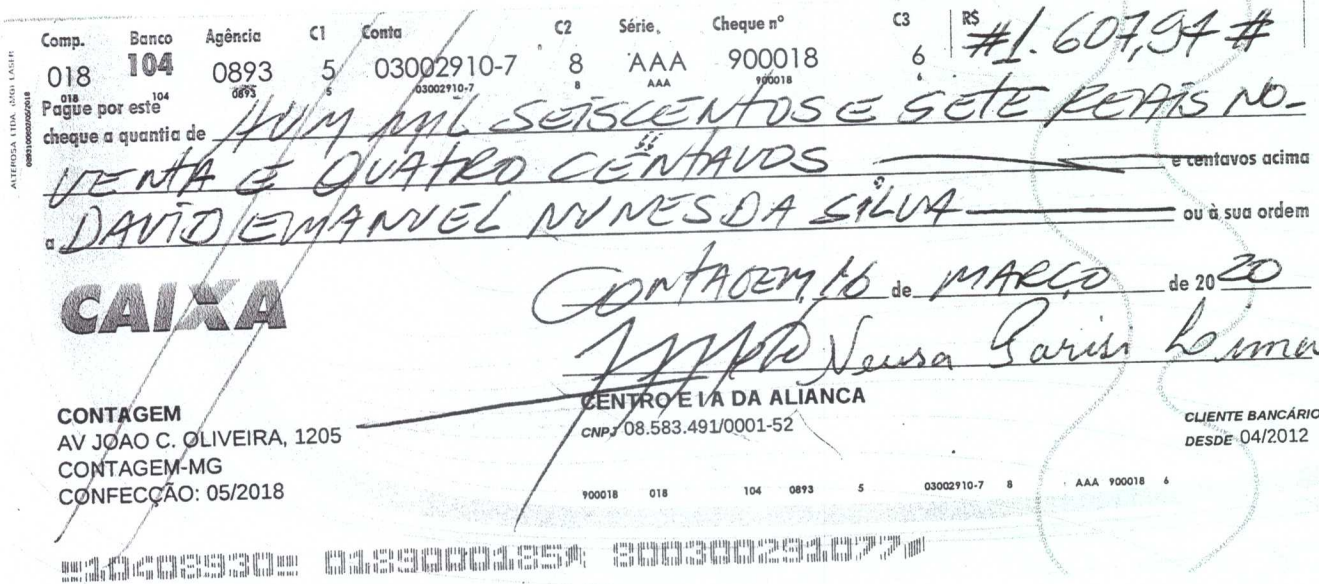 Comp. Banco Agência C1 Conta C2 Série Cheque nº C3 R$ #1.607,94#
018 104 0893 5 03002910-7 8 AAA 900018 6
018 104 0893 5 03002910-7 8 AAA 900018 6
Pague por este
cheque a quantia de HUM MIL SEISCENTOS E SETE REAIS NO-
VENTA E QUATRO CENTAVOS e centavos acima
a DAVID EMANUEL NUNES DA SILVA ou à sua ordem
CONTAGEM, 16 de MARÇO de 2020
CAIXA
Neusa
CENTRO E I A DA ALIANCA
CNPJ 08.583.491/0001-52
CLIENTE BANCÁRIO
DESDE 04/2012
CONTAGEM
AV JOAO C. OLIVEIRA, 1205
CONTAGEM-MG
CONFECÇÃO: 05/2018
900018 018 104 0893 5 03002910-7 8 AAA 900018 6
10408930 0189000185 800300291077